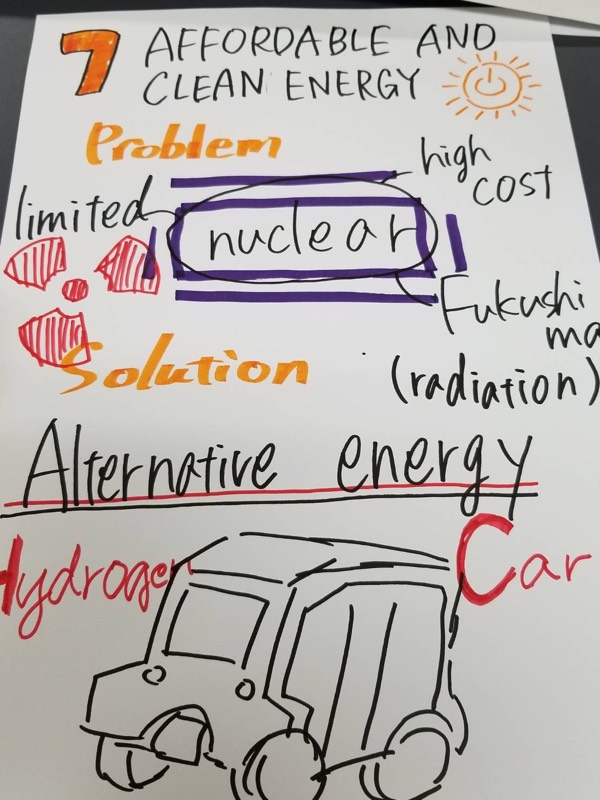 7 AFFORDABLE AND
CLEAN ENERGY
Problem
high
cost
limited
nuclear
Fukushi
ma
(radiation)
Solution
Alternative energy
Hydrogen Car